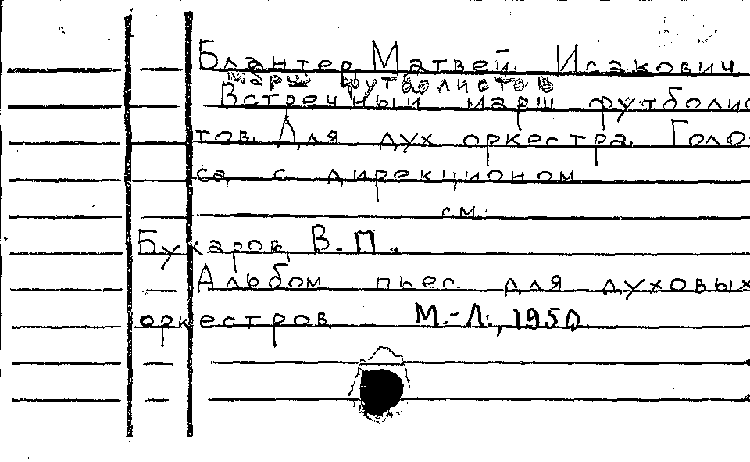 Блантер, Матвей Исакович
Марш футболистов
Встречный марш футболис
тов. Для дух оркестра. Голо
са с дирекционом
см.
Букаров, В.П.
Альбом пьес для духовых
оркестров М.-Л., 1950